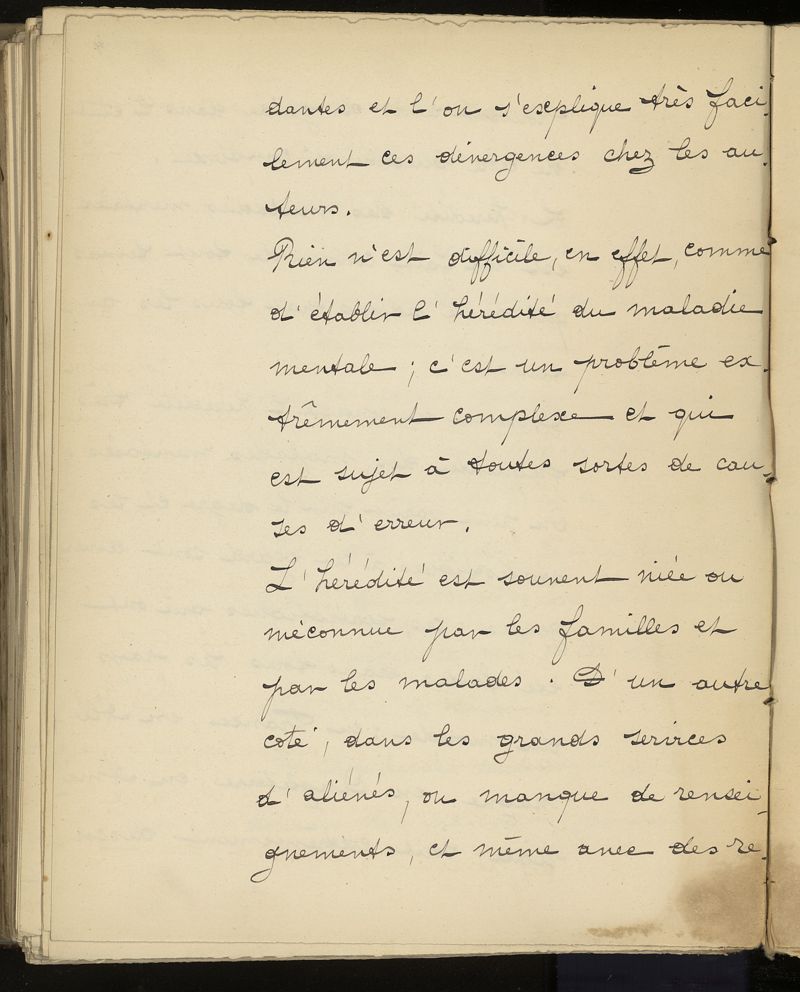 dantes et l'on s'explique très faci-
lement ces divergences chez les au-
teurs.
Rien n'est difficile, en effet, comme
d'établir l'hérédité du maladie
mentale ; c'est un problème ex-
trêmement complexe et qui
est sujet à toutes sortes de cau-
ses d'erreur.
L'hérédité est souvent niée ou
méconnue par les familles et
par les malades. D'un autre
coté, dans les grands services
d'aliénés, on manque de rensei-
gnements, et même avec des re-